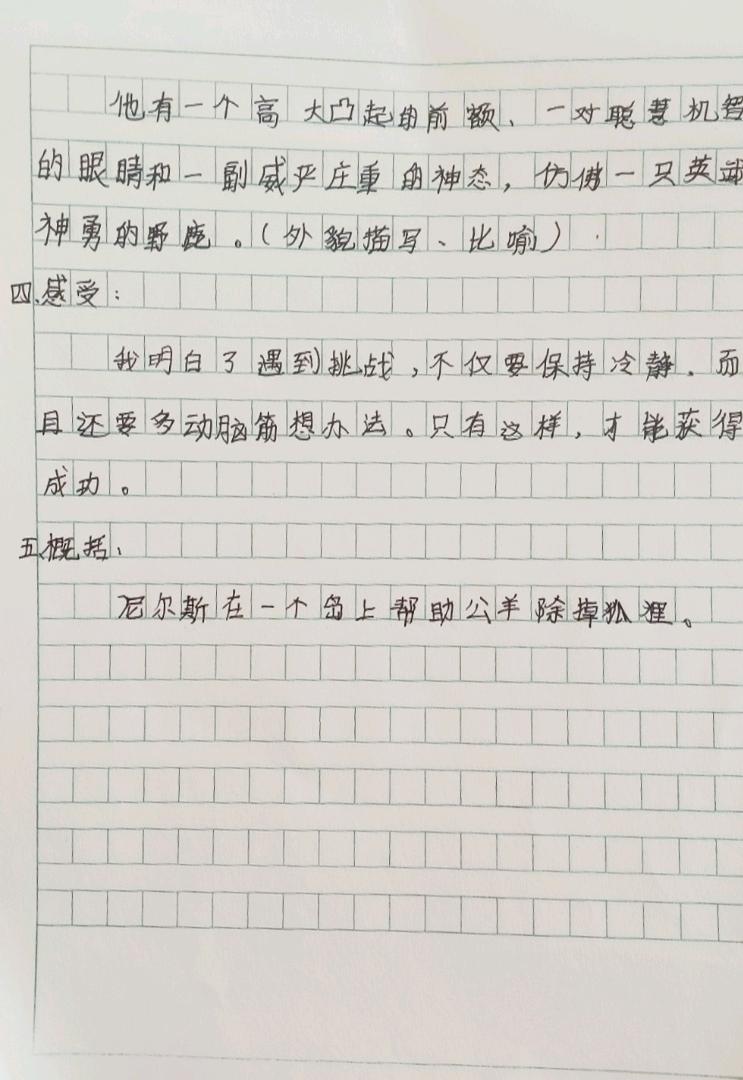 他有一个高大凸起的前额、一对聪慧机智
的眼睛和一副威严庄重的神态，仿佛一只英武
神勇的野鹿。（外貌描写、比喻）
四、感受：
我明白了遇到挑战，不仅要保持冷静．而
且还要多动脑筋想办法。只有这样，才能获得
成功。
五、概括：
尼尔斯在一个岛上帮助公羊除掉狐狸。